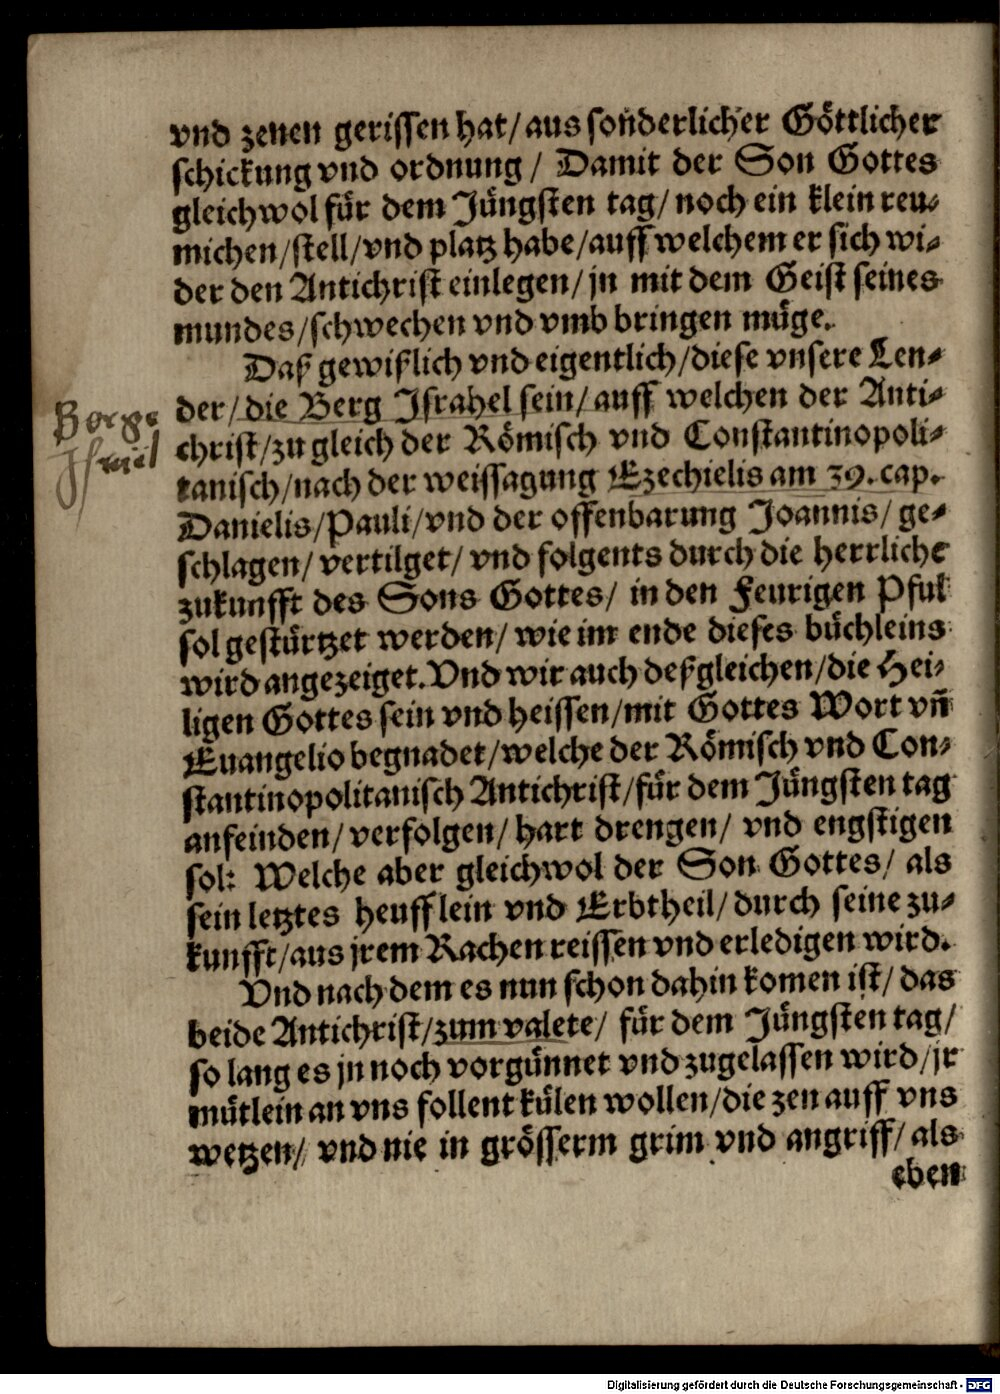 vnd zenen gerissen hat/ aus sonderlicher Göttlicher
schickung vnd ordnung / Damit der Son Gottes
gleichwol für dem Jüngsten tag/ noch ein klein reu-
michen/stell/vnd platz habe/auff welchem er sich wi-
der den Antichrist einlegen/ jn mit dem Geist seines
mundes/schwechen vnd vmb bringen müge.
Daß gewißlich vnd eigentlich/diese vnsere Len-
der/die Berg Israhel sein/auff welchen der Anti-
Berge
christ/zu gleich der Römisch vnd Constantinopoli-
Israel
tanisch/nach der weissagung Ezechielis am 39. cap.
Danielis/Pauli/vnd der offenbarung Joannis/ ge-
schlagen/ vertilget/ vnd folgents durch die herrliche
zukunfft des Sons Gottes/ in den Feurigen Pful
sol gestürtzet werden/ wie im ende dieses büchleins
wird angezeiget. Vnd wir auch deßgleichen/die Hei-
ligen Gottes sein vnd heissen/mit Gottes Wort vn̄
Euangelio begnadet/welche der Römisch vnd Con-
stantinopolitanisch Antichrist/für dem Jüngsten tag
anfeinden/ verfolgen/ hart drengen/ vnd engstigen
sol: Welche aber gleichwol der Son Gottes/ als
sein letztes heufflein vnd Erbtheil/ durch seine zu-
kunfft/aus jrem Rachen reissen vnd erledigen wird.
Vnd nach dem es nun schon dahin komen ist/ das
beide Antichrist/zum valete/ für dem Jüngsten tag/
so lang es jn noch vorgünnet vnd zugelassen wird/jr
mütlein an vns follent külen wollen/die zen auff vns
wetzen/ vnd nie in grösserm grim vnd angriff/ als
eben
Digitalisierung gefördert durch die Deutsche Forschungsgemeinschaft - DFG